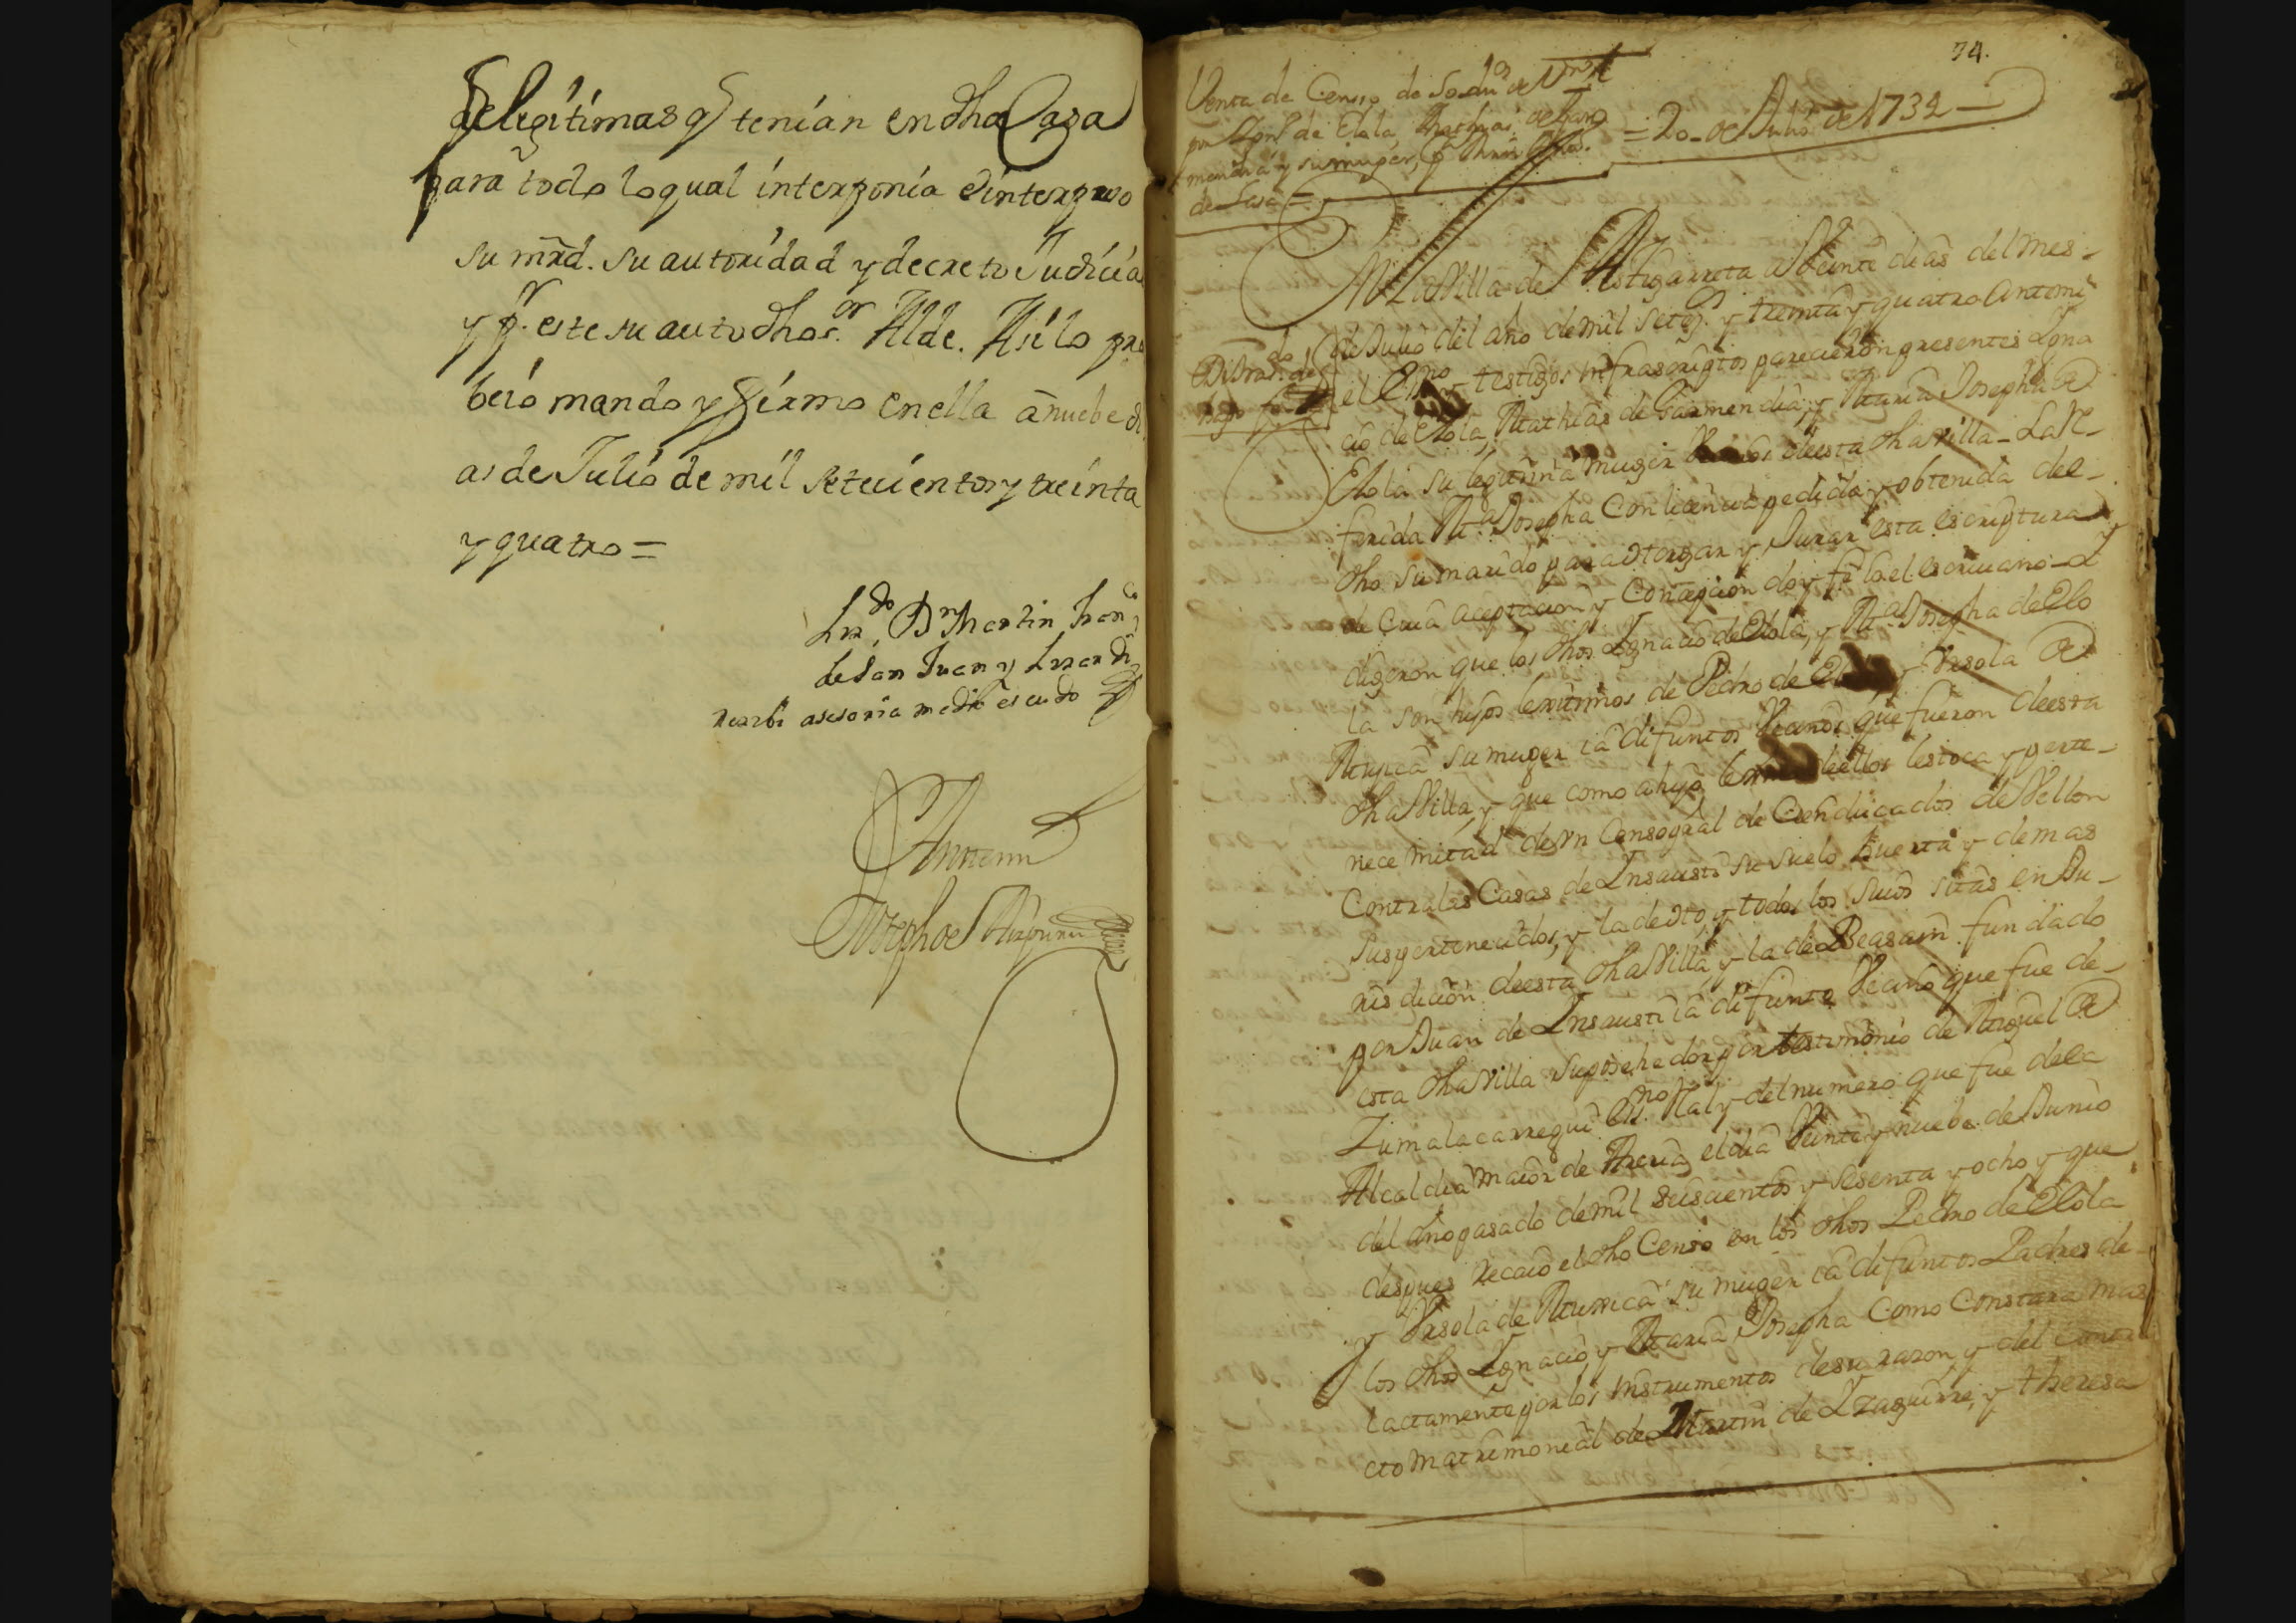 de legitimas q̃ tenian en dha Casa
para todo lo qual interponia e interpuso
su mrd. su autoridad y decreto Judicia
y pr. este su auto dho sor. Alde. Asi lo pro
beió mando y firmo en ella a nuebe di
as de Julio de mil setecientos y treinta
y quatro =
Lizdo. Dn Martin Franco
de San Juan y Lizardi
rezibi asesoria medio escudo
Antemi
Joseph de Aizpuru
94.
Venta de Censso de 50 dus de
por Ignº de Elola Mathias de Garz
mendia y su muger,
de Lasa =
= 20 de Julio de 1734 =
En la Villa de Astigarreta a Veinte dias del mes
de Julio del año de mil seteçs. y treinta y quatro Antemi
el Essno y testigos infrascriptos parecieron presentes Igna
cio de Elola, Mathias de Garmendia, y Maria Josepha de
Elola su legitima muger Vecinos de esta dha Villa - La re
ferida Ma Josepha Con licencia pedida y obtenida del
dho su marido para otorgar y Jurar esta escriptura
de Cuia aceptacion y Concecion doy fe Io el escriuano - y
digeron que los dhos Ignacio de Elola, y Ma Josepha de Elo
la son hijos lexitimos de Pedro de Elola y Vrsola de
Murica su muger ia difuntos Vecinos que fueron de esta
dha Villa, y que como a hijos de ellos les toca y perte
nece mitad de vn Censo pral de Cien ducados de Vellon
Contra las Casas de Insausti su suelo huerta y demas
sus pertenecidos, y la de Oto, y todos los suios sitas en Ju
risdicion de esta dha Villa y la de Beasain fundado
por Juan de Insausti ia difunto Vecino que fue de
esta dha Villa su posehedor por testimonio de Miguel de
Zumalacarregui Essno. Ral y del numero que fue de la
Alcaldia maior de Areria el dia Veinte y nuebe de Junio
del año pasado de mil seiscientos y sesenta y ocho y que
despues recaio el dho Censo en los dhos Pedro de Elola
y Vrsola de Murrica su muger ia difuntos Padres de
los dhos Ignacio y Maria Josepha Como Constara mas
lactamente por los instrumentos de su razon y del Contra
cto matrimonial de Martin de Yzaguirre, y theresa